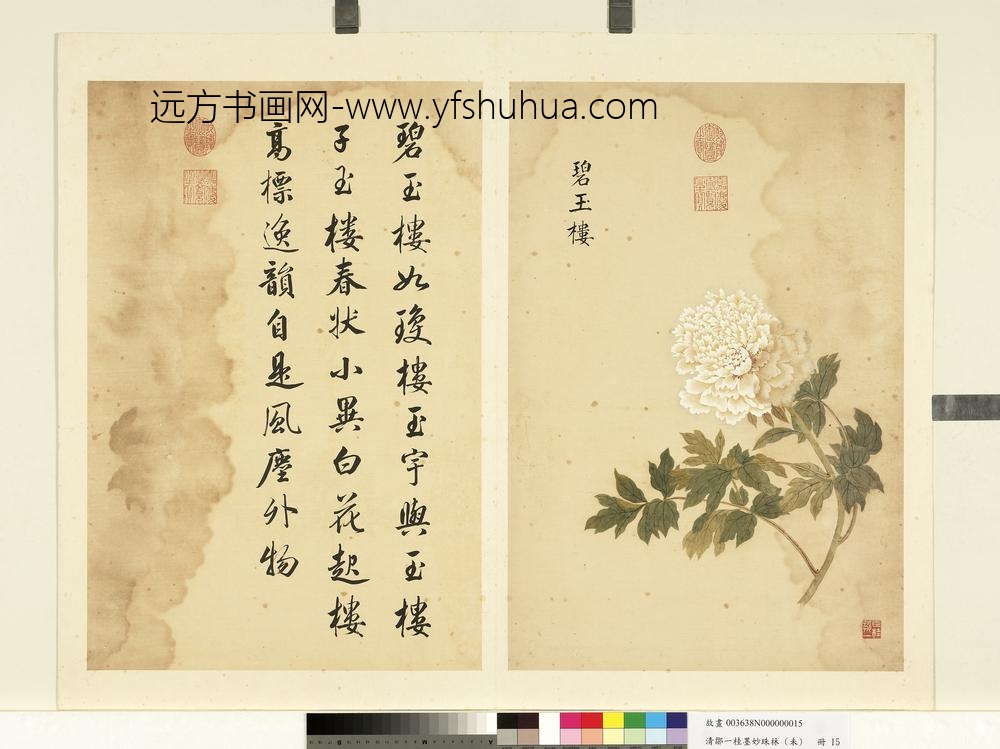 远方书画网-www.yfshuhua.com
碧玉樓
碧玉樓如瓊樓玉宇與玉樓
子玉樓春狀小異白花起樓
高標逸韻自是風塵外物
故畫 003638N000000015
清鄒一桂墨妙珠林（未） 冊 15